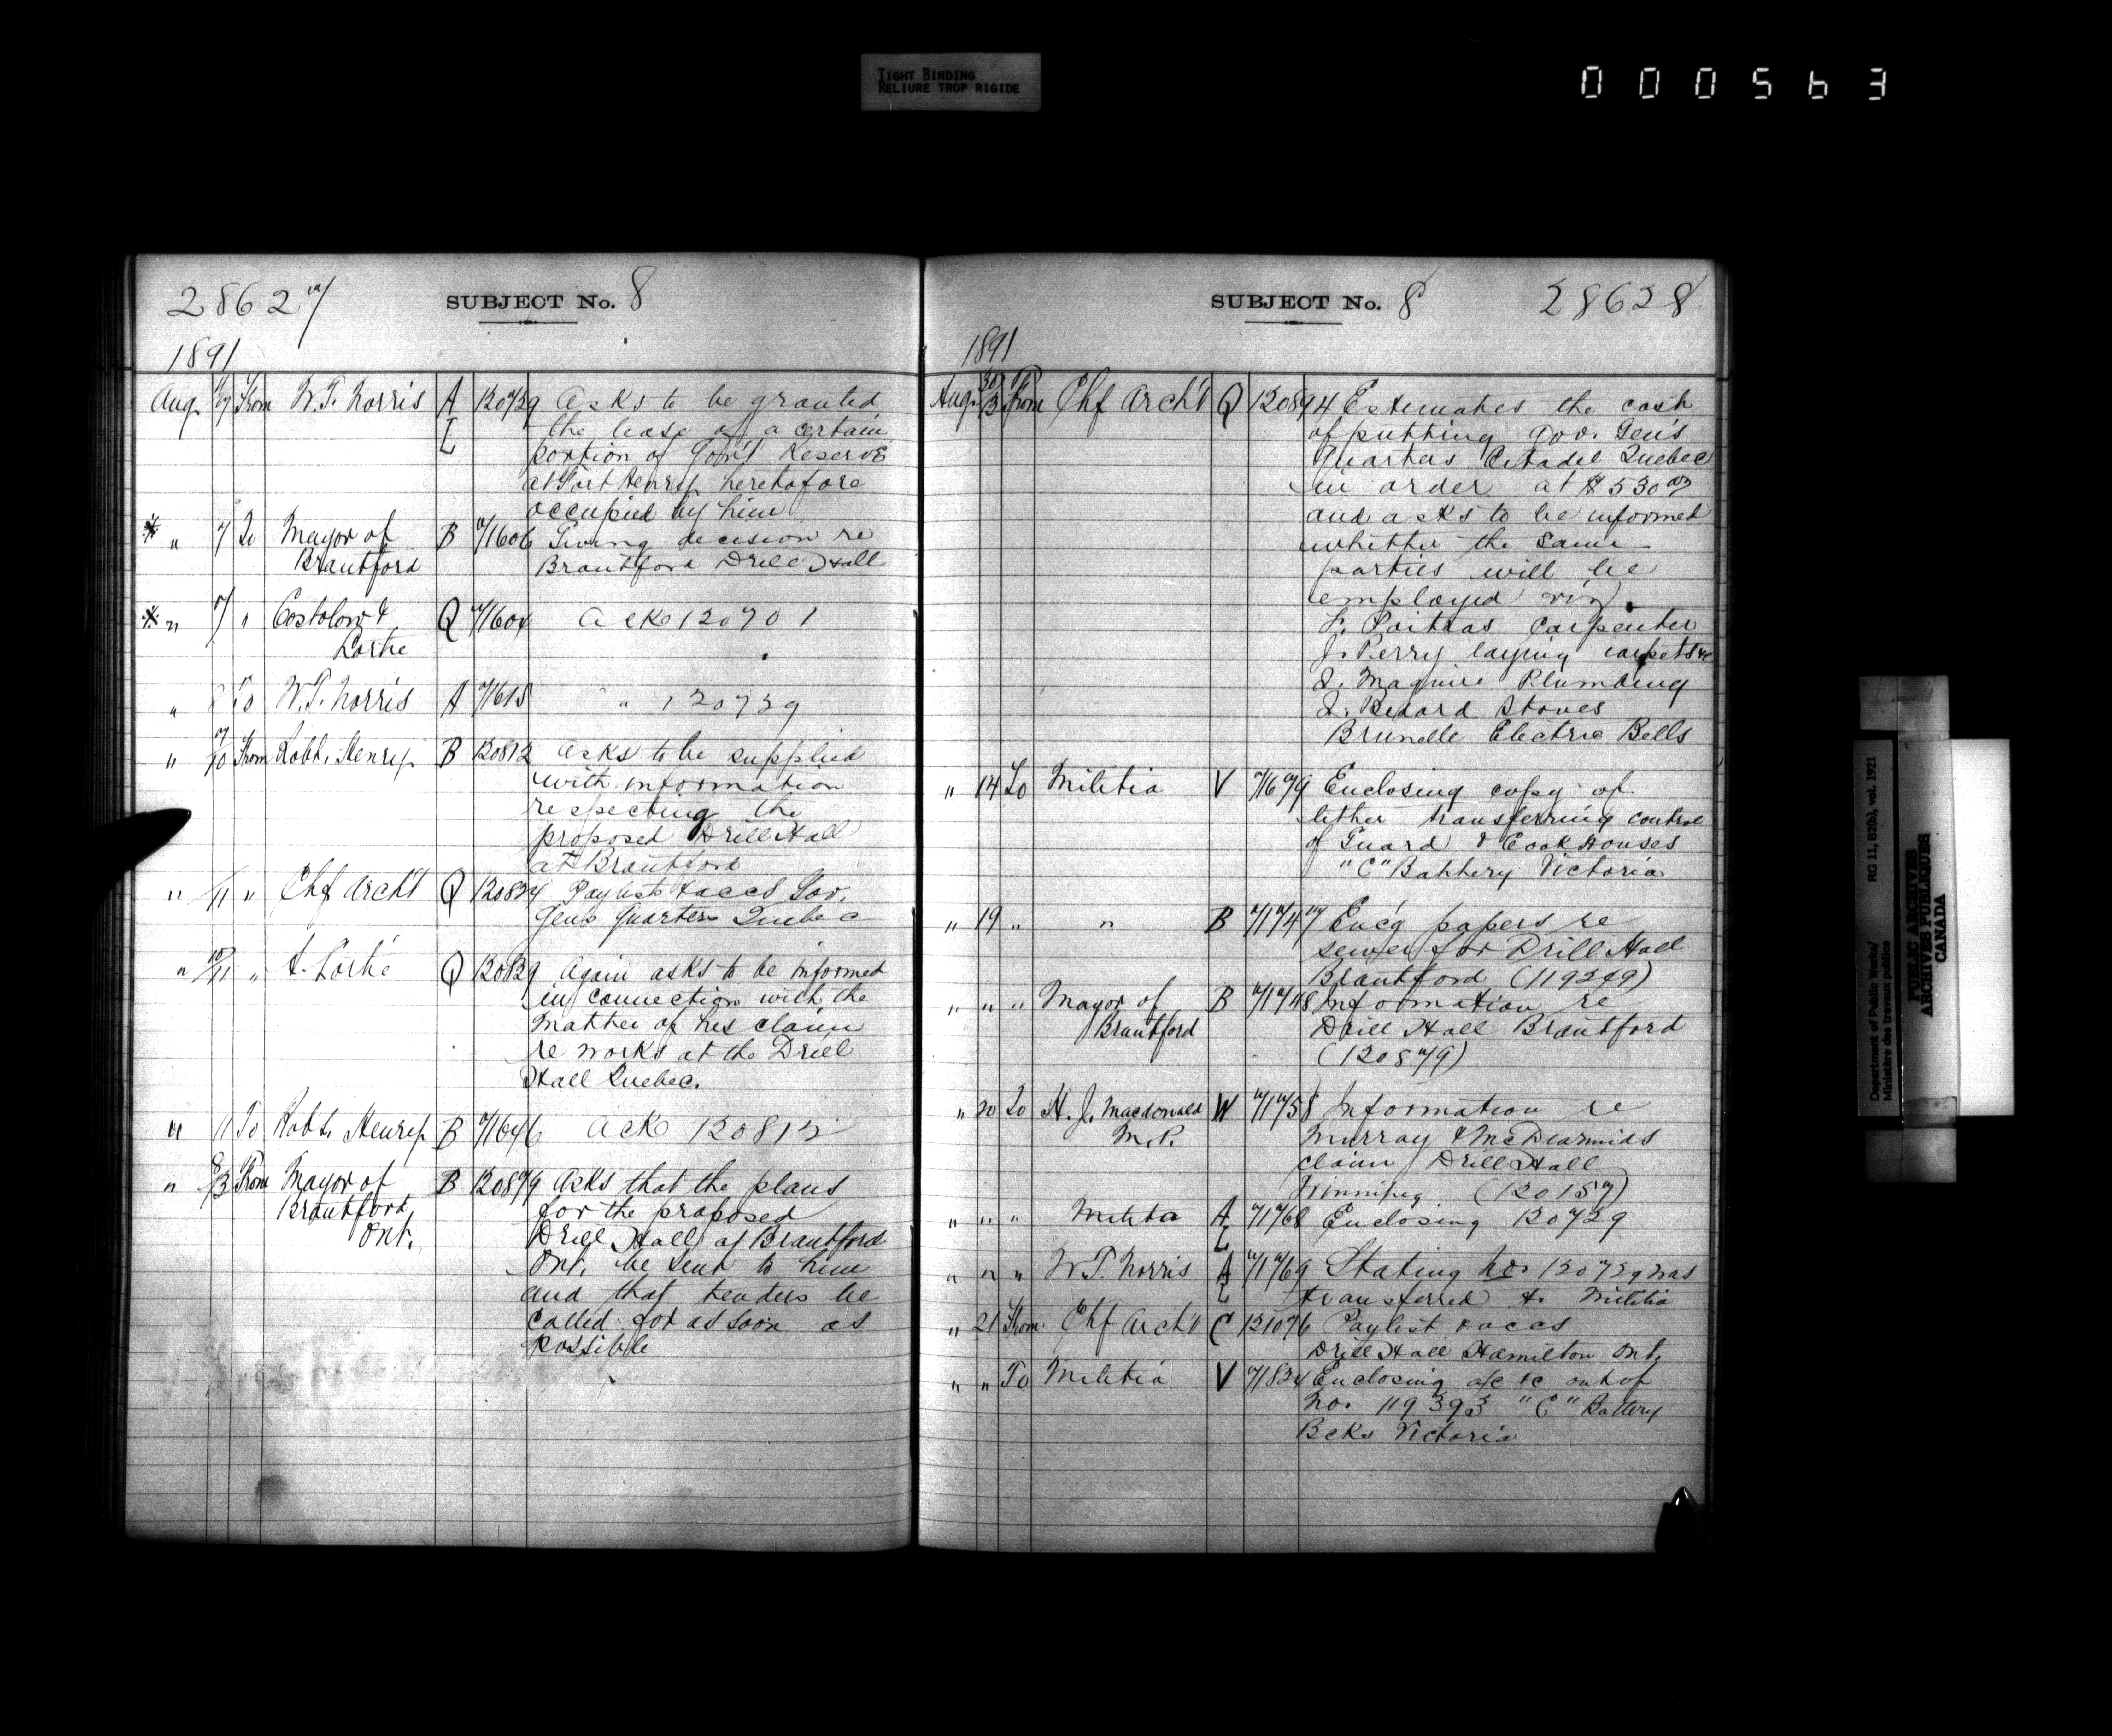 TIGHT BINDING
RELIURE TROP RIGIDE
000563
28627
SUBJECT No. 8
1891
Aug. 7 From W.T. Norris A L 120739 Asks to be granted
the lease of a certain
portion of Gov't Reserve
at Fort Henry heretofore
occupied by him
" 7 To Mayor of B 71606 Giving decision re
Brantford Brantford Drill Hall
" 7 " Costolow & Q 71604 Ack 120701
Lortie
" 8 To W.T. Norris A 71615 " 120739
" 7/10 From Robt. Henry B 120812 Asks to be supplied
with information
respecting the
proposed Drill Hall
at Brantford
" /11 " Chf Archt Q 120824 Paylist & accs Gov.
Gens Quarters Quebec
" 10/11 " A. Lortie Q 120829 Again asks to be informed
in connection with the
matter of his claim
re works at the Drill
Hall Quebec.
" 11 To Robt. Henry B 71646 Ack 120812
" 8/13 From Mayor of B 120879 Asks that the plans
Brantford for the proposed
Ont. Drill Hall at Brantford
Ont. be sent to him
and that tenders be
called for as soon as
possible
SUBJECT No. 8
28628
1891
Aug. 30/13 From Chf Archt Q 120894 Estimates the cost
of putting Gov. Gen's
Quarters Citadel Quebec
in order at $530.00
and asks to be informed
whether the same
parties will be
employed viz.
L. carpenter
J. Perry laying carpets &c
J. Maguire Plumbing
J. Bedard Stoves
Brunelle Electric Bells
" 14 To Militia V 71679 Enclosing copy of
letter transferring control
of Guard & Cook Houses
"C" Battery Victoria
" 19 " " B 71747 Enc'g papers re
sewer for Drill Hall
Brantford (119249)
" " " Mayor of B 71748 Information re
Brantford Drill Hall Brantford
(120879)
" 20 To H.J. Macdonald W 71758 Information re
M.P. Murray & McDearmids
claim Drill Hall
Winnipeg (120157)
" " " Militia A L 71768 Enclosing 120739
" " " W.T. Norris A L 71769 Stating No. 120739 was
transferred to Militia
" 21 From Chf Archt C 121076 Paylist & accs
Drill Hall Hamilton Ont.
" " To Militia V 71834 Enclosing a/c &c out of
No. 119393 "C" Battery
Bcks Victoria
Department of Public Works/ RG 11, B2(b), vol. 1921
Ministère des travaux publics
PUBLIC ARCHIVES
ARCHIVES PUBLIQUES
CANADA